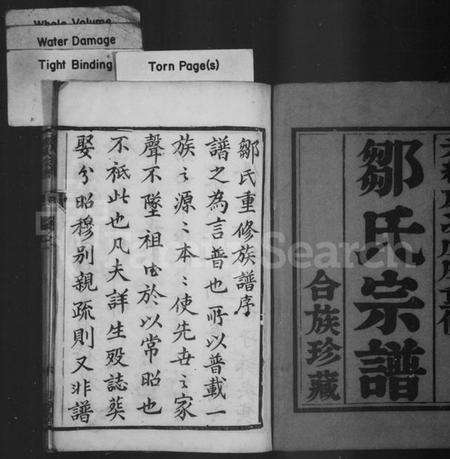 Whole Volume
Water Damage
Tight Binding
Torn Page(s)
鄒氏宗譜
合族珍藏
鄒氏重修族譜序
譜之為言普也所以普載一
族之源〻本〻使先世之家
聲不墜祖功於以常昭也
不祗此也凡夫詳生歿誌葬
娶分昭穆別親疏則又非譜